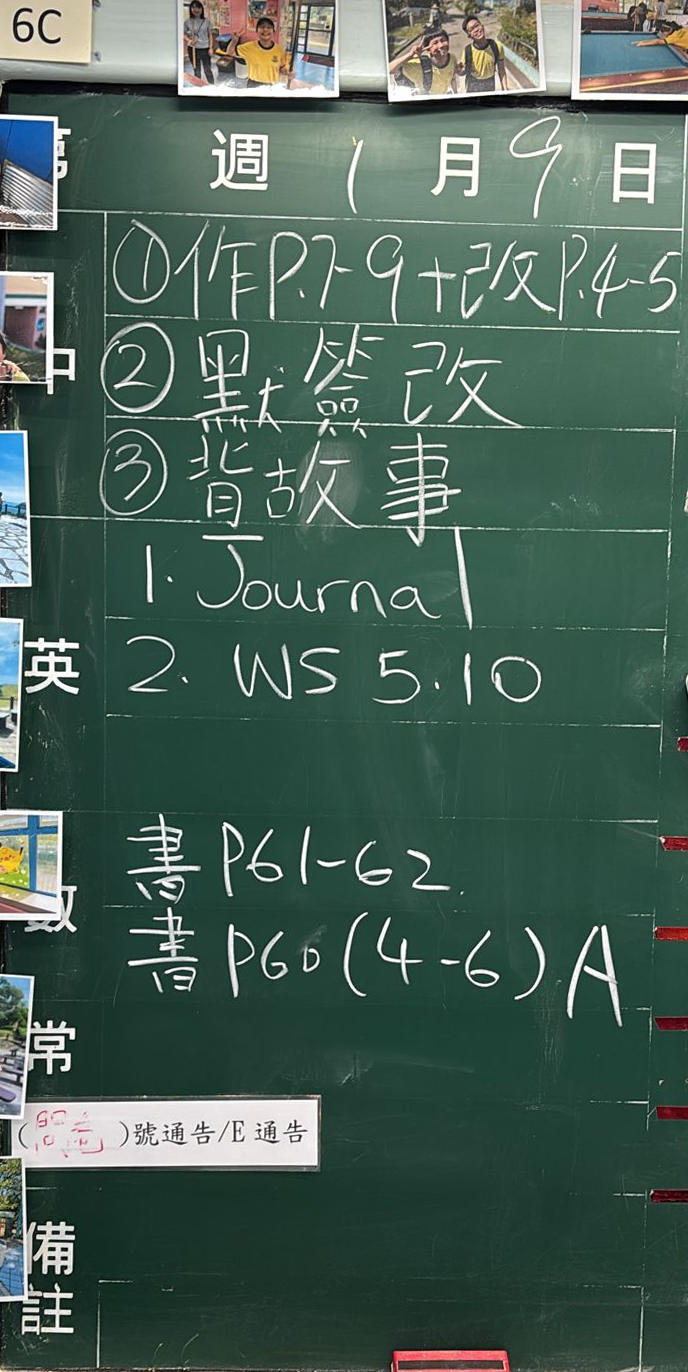 6C
週 1 月 9 日
①作P.7-9+改P.4-5
②默簽改
③背故事
1. Journal
英
2. WS 5.10
書 P61-62
書 P60 (4-6) A
常
)號通告/E 通告
備註